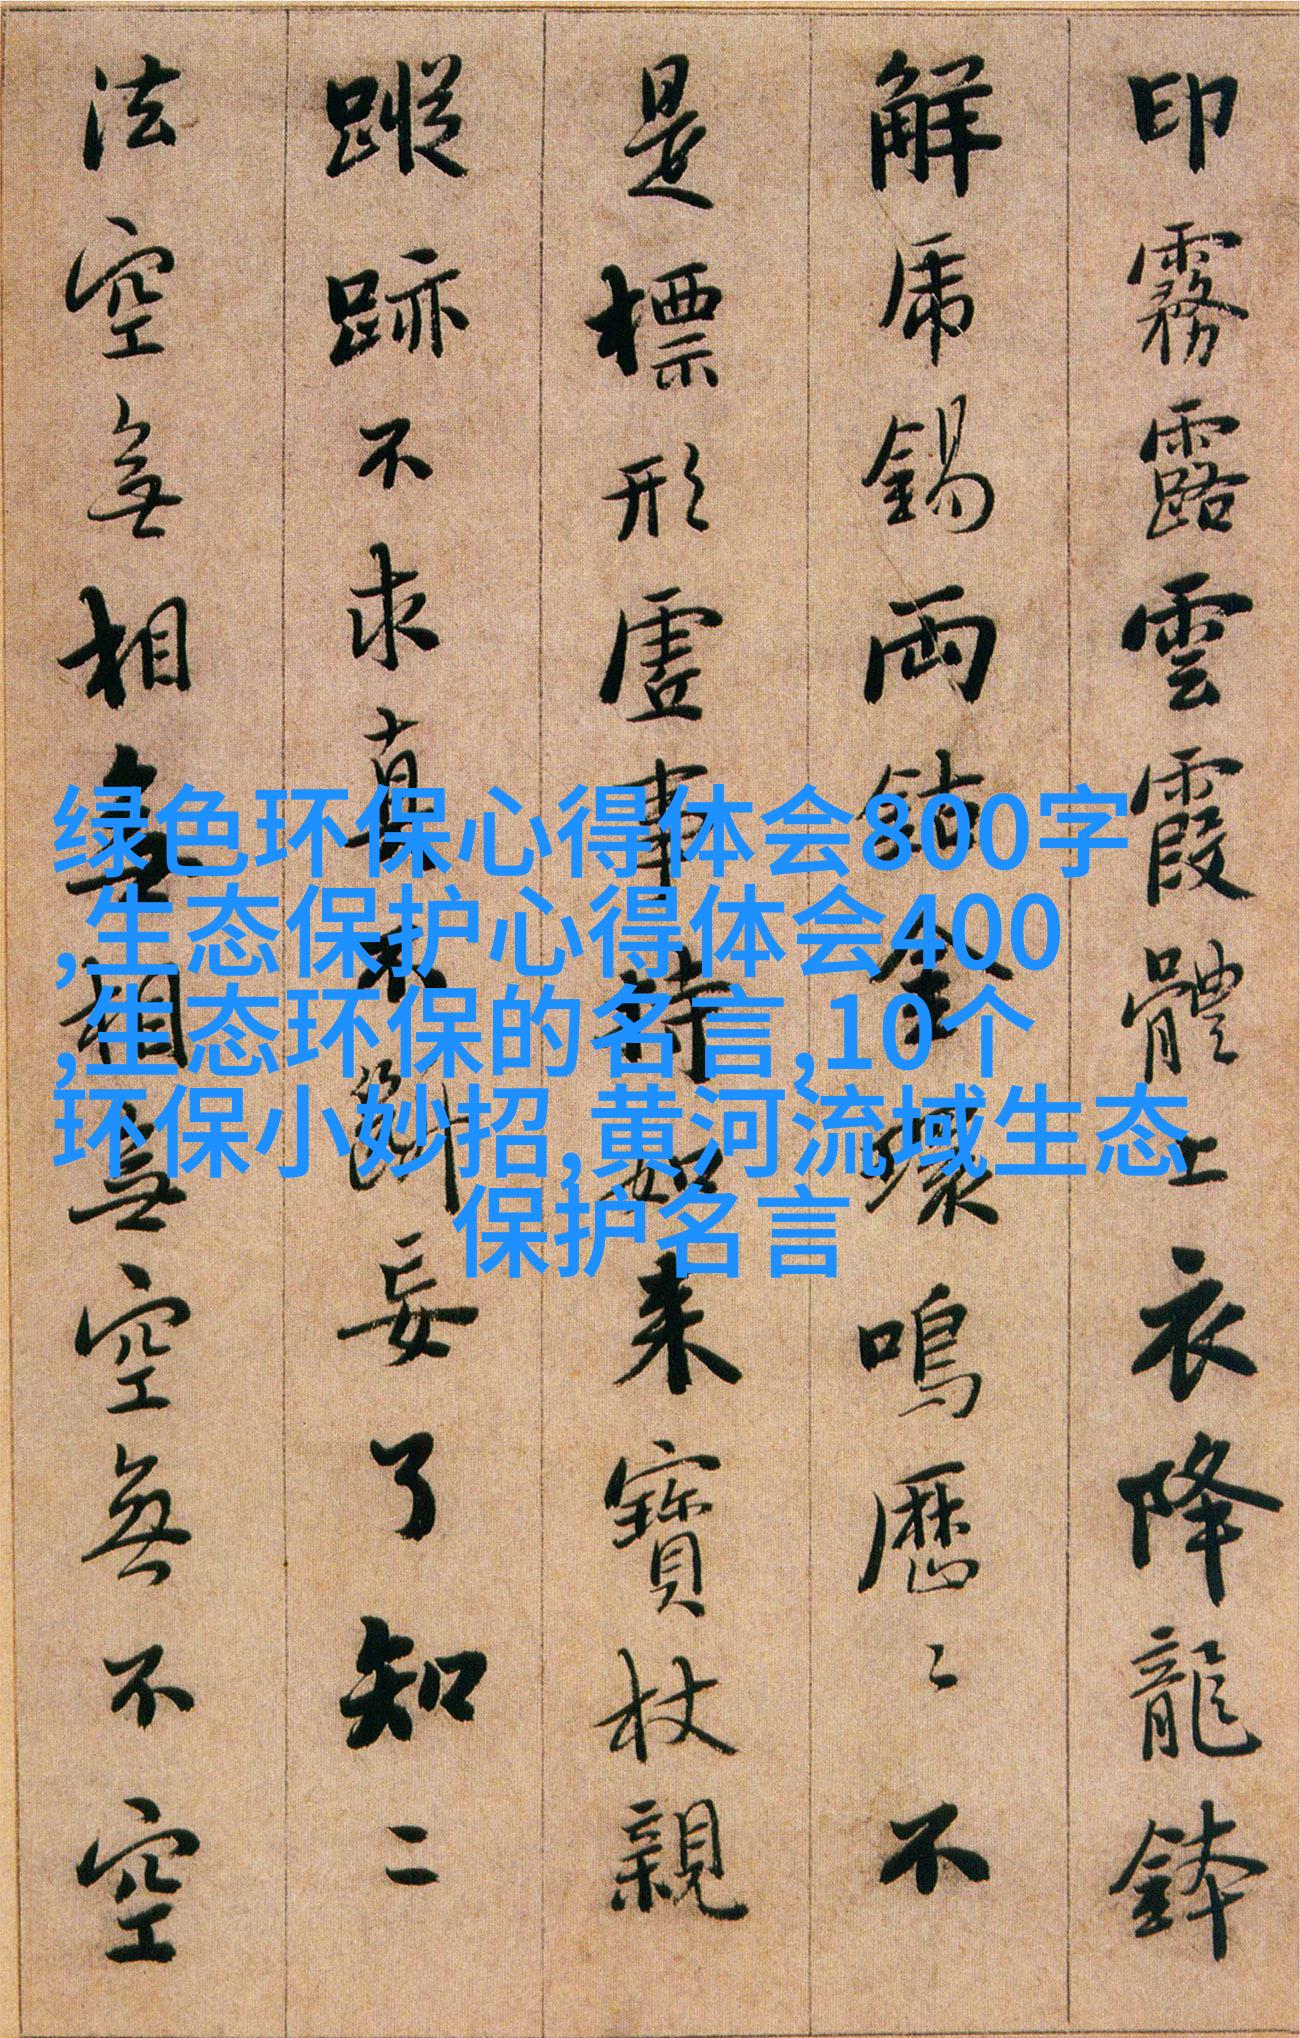 印霧露雲霞體上衣降龍鉢
解虎錫兩鈷金環鳴歷〻不
是標形虛事持如來寶杖親
蹤跡不求真不斷妄了知二
法空無相無相無空無不空
绿色环保心得体会800字
,生态保护心得体会400
,生态环保的名言,10个
环保小妙招,黄河流域生态
保护名言